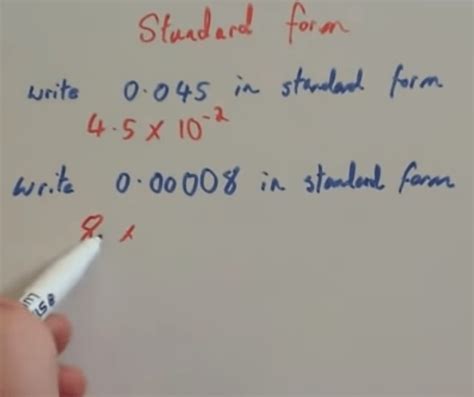 Standard form
write 0.045 in standard form
4.5 × 10⁻²
write 0.00008 in standard form
8. ×